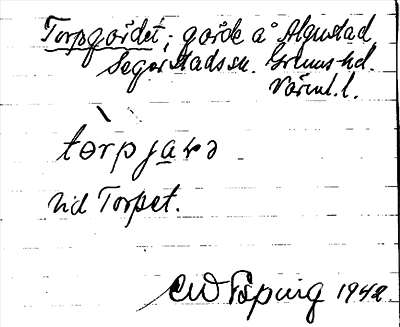 Torpgärdet; gärde å Algustad
Segerstads sn. Grums hd.
Värml. l.
tòrpjaṛə
vid Torpet.
1942.